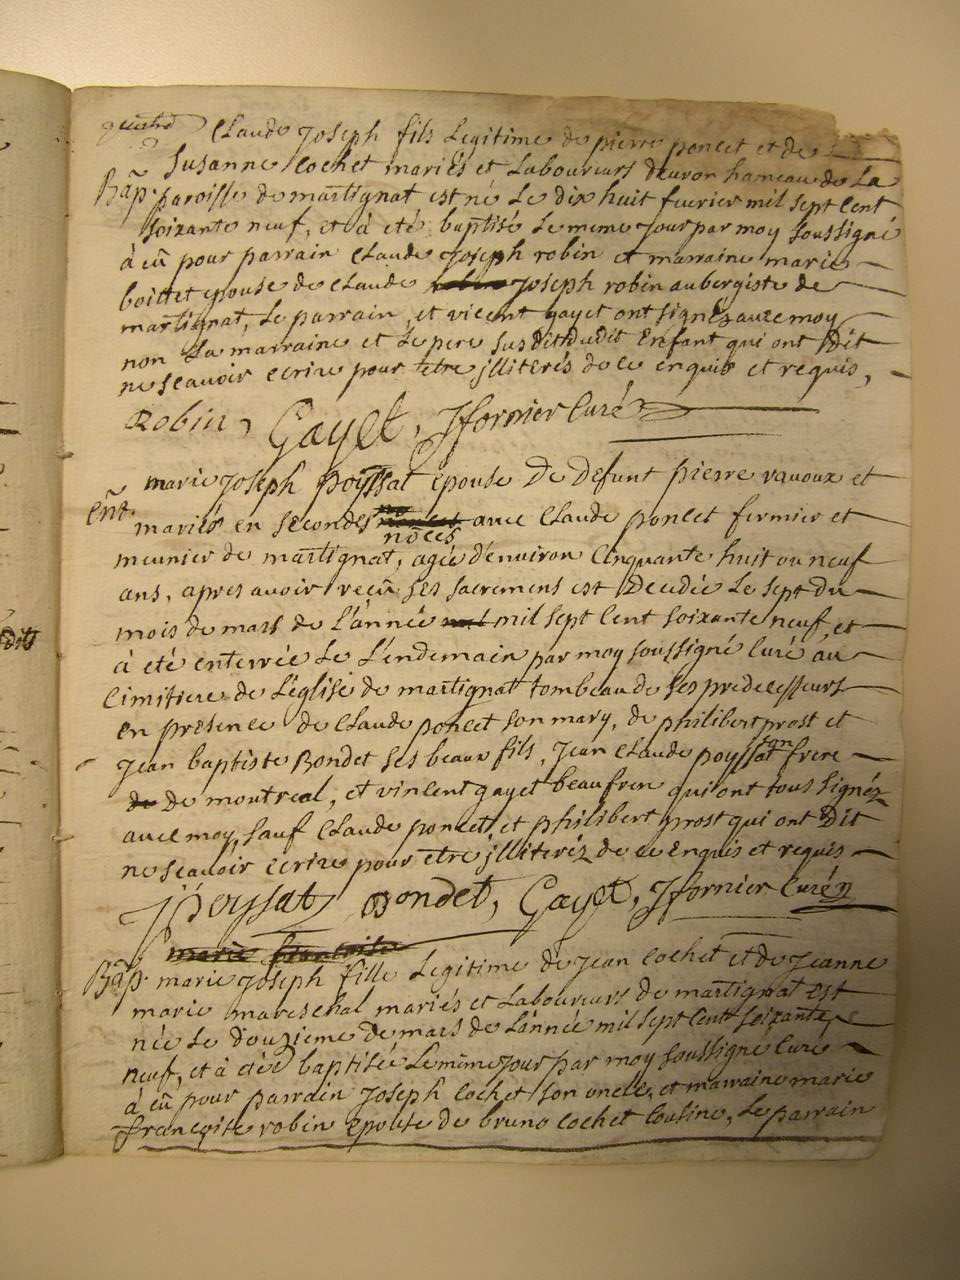 Claude Joseph fils Legitime de pierre poncet et de
Susanne Cochet mariés et Laboureurs deuron hameau de La
Bap. paroisse de martignat est né Le dix huit feurier mil sept Cent
soixante neuf, et à eté baptisé Le meme Jour par moy soussigné
à eû pour parrain Claude Joseph robin et marraine marie
boittet epouse de Claude Joseph robin aubergiste de
martignat, Le parrain, et vicent gayet ont signéz auec moy
non La marraine et Le pere susdit dudit Enfant qui ont Dit
ne scauoir ecrire pour etre jlliterés de ce enquis et requis,
Robin, Gayet, Jfornier Curé
marie Joseph poyssat epouse De Defunt pierre rauoux et
ent. mariés en secondes auec Claude poncet fermier et
nôces
meunier de martignat, agée d'enuiron Cinquante huit ou neuf
ans, apres auoir reçû ses sacremens est Decedée Le sept du
mois de mars de L'année mil sept Cent soixante neuf, et
à eté enterrée Le L'endemain par moy soussigné Curé au
Cimitiere de L'église de martignat tombeau de ses predecesseurs
en presence de Claude poncet son mary, de philibert prost et
Jean baptiste Bondet ses beaux fils, Jean Claude poyssat son frere
de montreal, et vincent gayet beaufrere qui ont tous signéz
auec moy, sauf Claude poncet, et philibert prost qui ont Dit
ne scauoir ecrire pour etre jlliteréz de ce enquis et requis
JPoyssat, Bondet, Gayet, Jfornier Curé
marie francoise
Bap. marie Joseph fille Legitime de Jean Cochet et de Jeanne
marie mareschal mariés et Laboureurs de martignat est
née Le douzieme de mars de L'année mil sept Cent soixante
neuf, et à eté baptisée Le meme Jour par moy soussigne Curé
à eû pour parrain Joseph Cochet son oncle, et marraine marie
françoise robin epouse de bruno Cochet Cousine, Le parrain